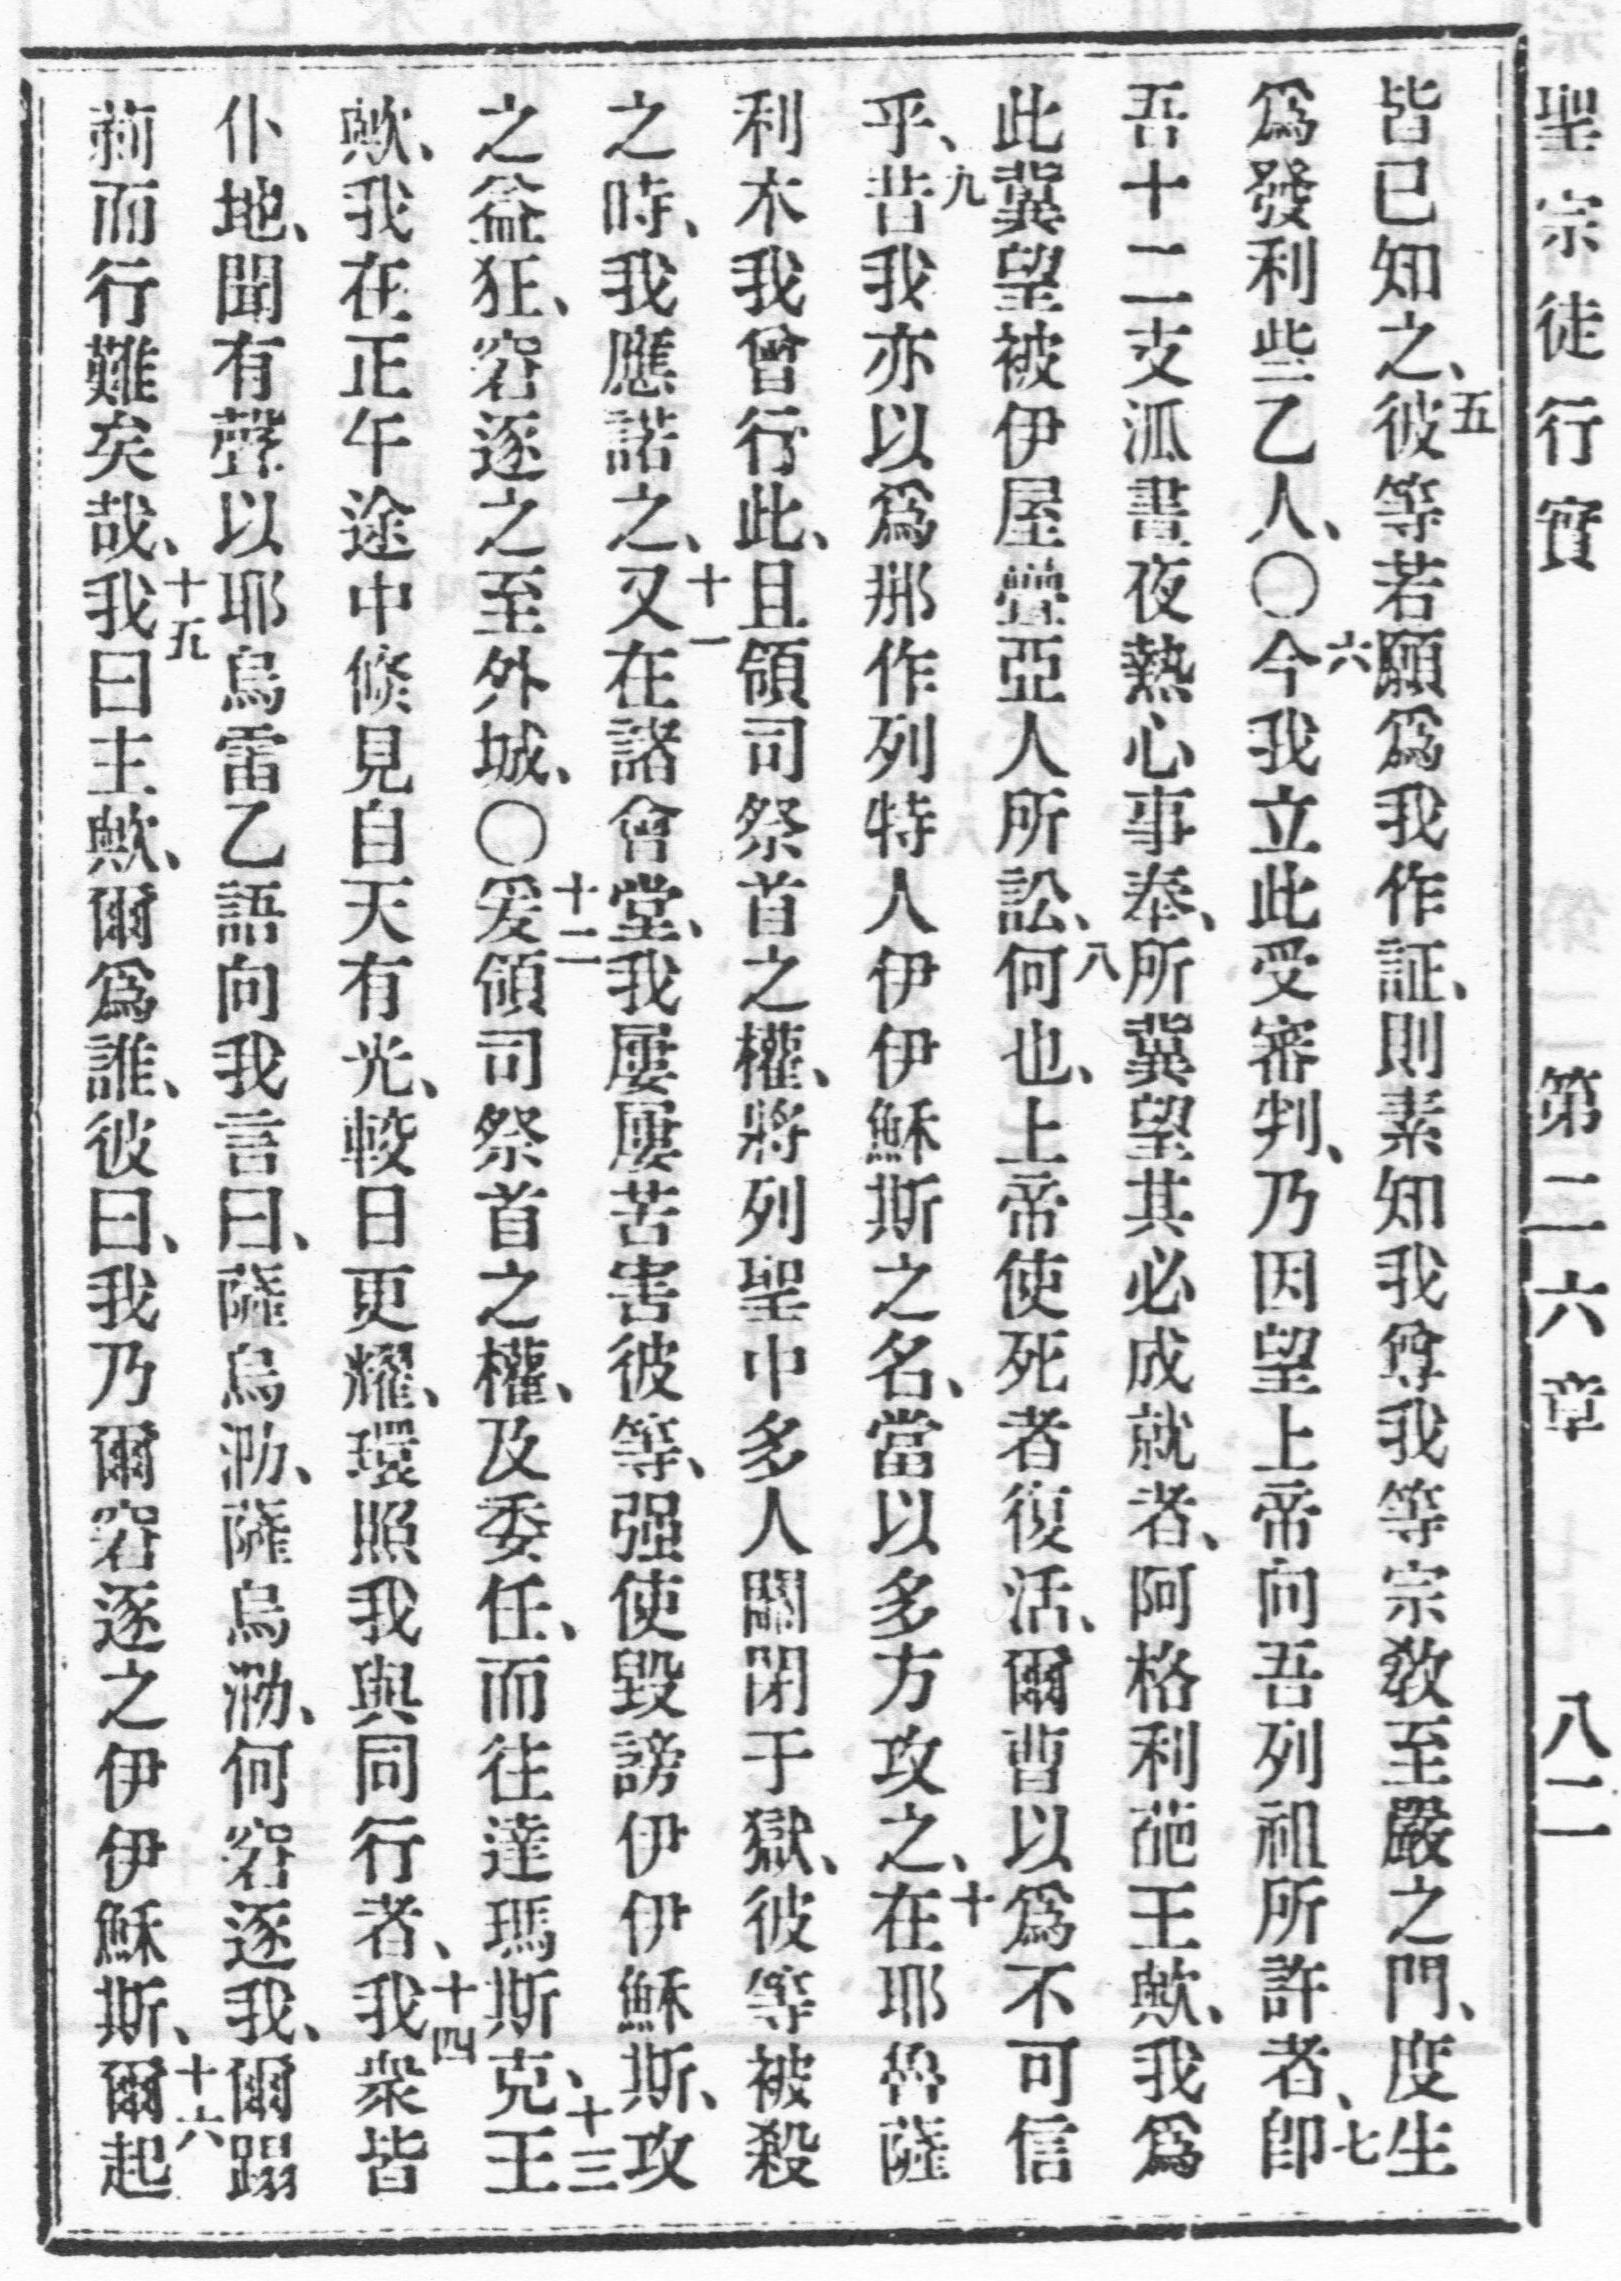 聖宗徒行實 第二六章 八二
皆已知之、五彼等若願爲我作証、則素知我尊我等宗教至嚴之門、度生
爲發利些乙人、〇六今我立此受審判、乃因望上帝向吾列祖所許者、七卽
吾十二支派晝夜熱心事奉、所冀望其必成就者、阿格利葩王歟、我爲
此冀望被伊屋疊亞人所訟、八何也、上帝使死者復活、爾曹以爲不可信
乎、九昔我亦以爲那作列特人伊伊穌斯之名、當以多方攻之、十在耶魯薩
利木我曾行此、且領司祭首之權、將列聖中多人關閉于獄、彼等被殺
之時、我應諾之、十一又在諸會堂、我屢屢苦害彼等、强使毀謗伊伊穌斯、攻
之益狂、窘逐之至外城、〇十二爰領司祭首之權、及委任、而往達瑪斯克、十三王
歟、我在正午途中倏見自天有光、較日更耀、環照我與同行者、十四我衆皆
仆地、聞有聲以耶烏雷乙語向我言曰、薩烏泐、薩烏泐、何窘逐我、爾踢
荊而行難矣哉、十五我曰主歟、爾爲誰、彼曰、我乃爾窘逐之伊伊穌斯、十六爾起